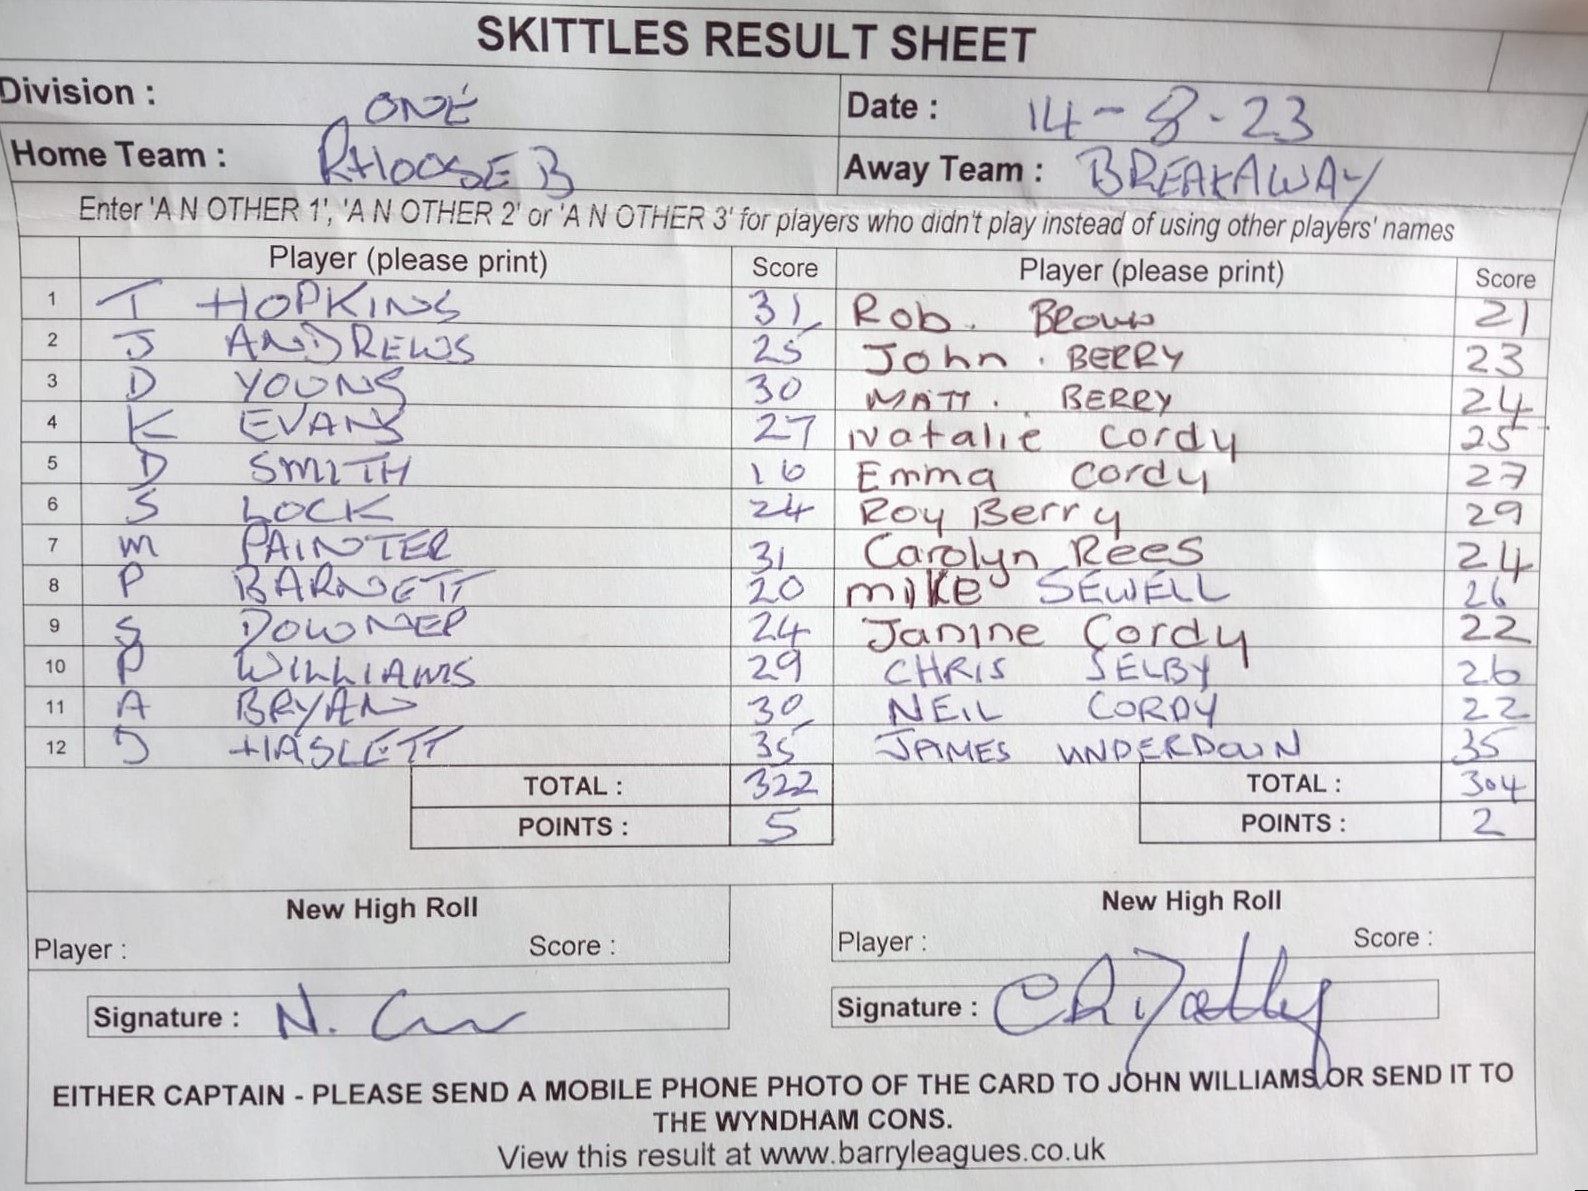 SKITTLES RESULT SHEET
Division : ONE Date : 14-8-23
Home Team : RHOOSE B Away Team : BREAKAWAY
Enter 'A N OTHER 1', 'A N OTHER 2' or 'A N OTHER 3' for players who didn't play instead of using other players' names
Player (please print) Score Player (please print) Score
1 T HOPKINS 31 Rob. Brown 21
2 J ANDREWS 25 John . BERRY 23
3 D YOUNG 30 MATT . BERRY 24
4 K EVANS 27 Natalie Cordy 25
5 D SMITH 16 Emma Cordy 27
6 S LOCK 24 Roy Berry 29
7 M PAINTER 31 Carolyn Rees 24
8 P BARNETT 20 mike SEWELL 26
9 S DOWNER 24 Janine Cordy 22
10 P WILLIAMS 29 CHRIS SELBY 26
11 A BRYAN 30 NEIL CORDY 22
12 J HASLETT 35 JAMES UNDERDOWN 35
TOTAL : 322 TOTAL : 304
POINTS : 5 POINTS : 2
New High Roll New High Roll
Player : Score : Player : Score :
Signature : N. Signature :
EITHER CAPTAIN - PLEASE SEND A MOBILE PHONE PHOTO OF THE CARD TO JOHN WILLIAMS OR SEND IT TO
THE WYNDHAM CONS.
View this result at www.barryleagues.co.uk